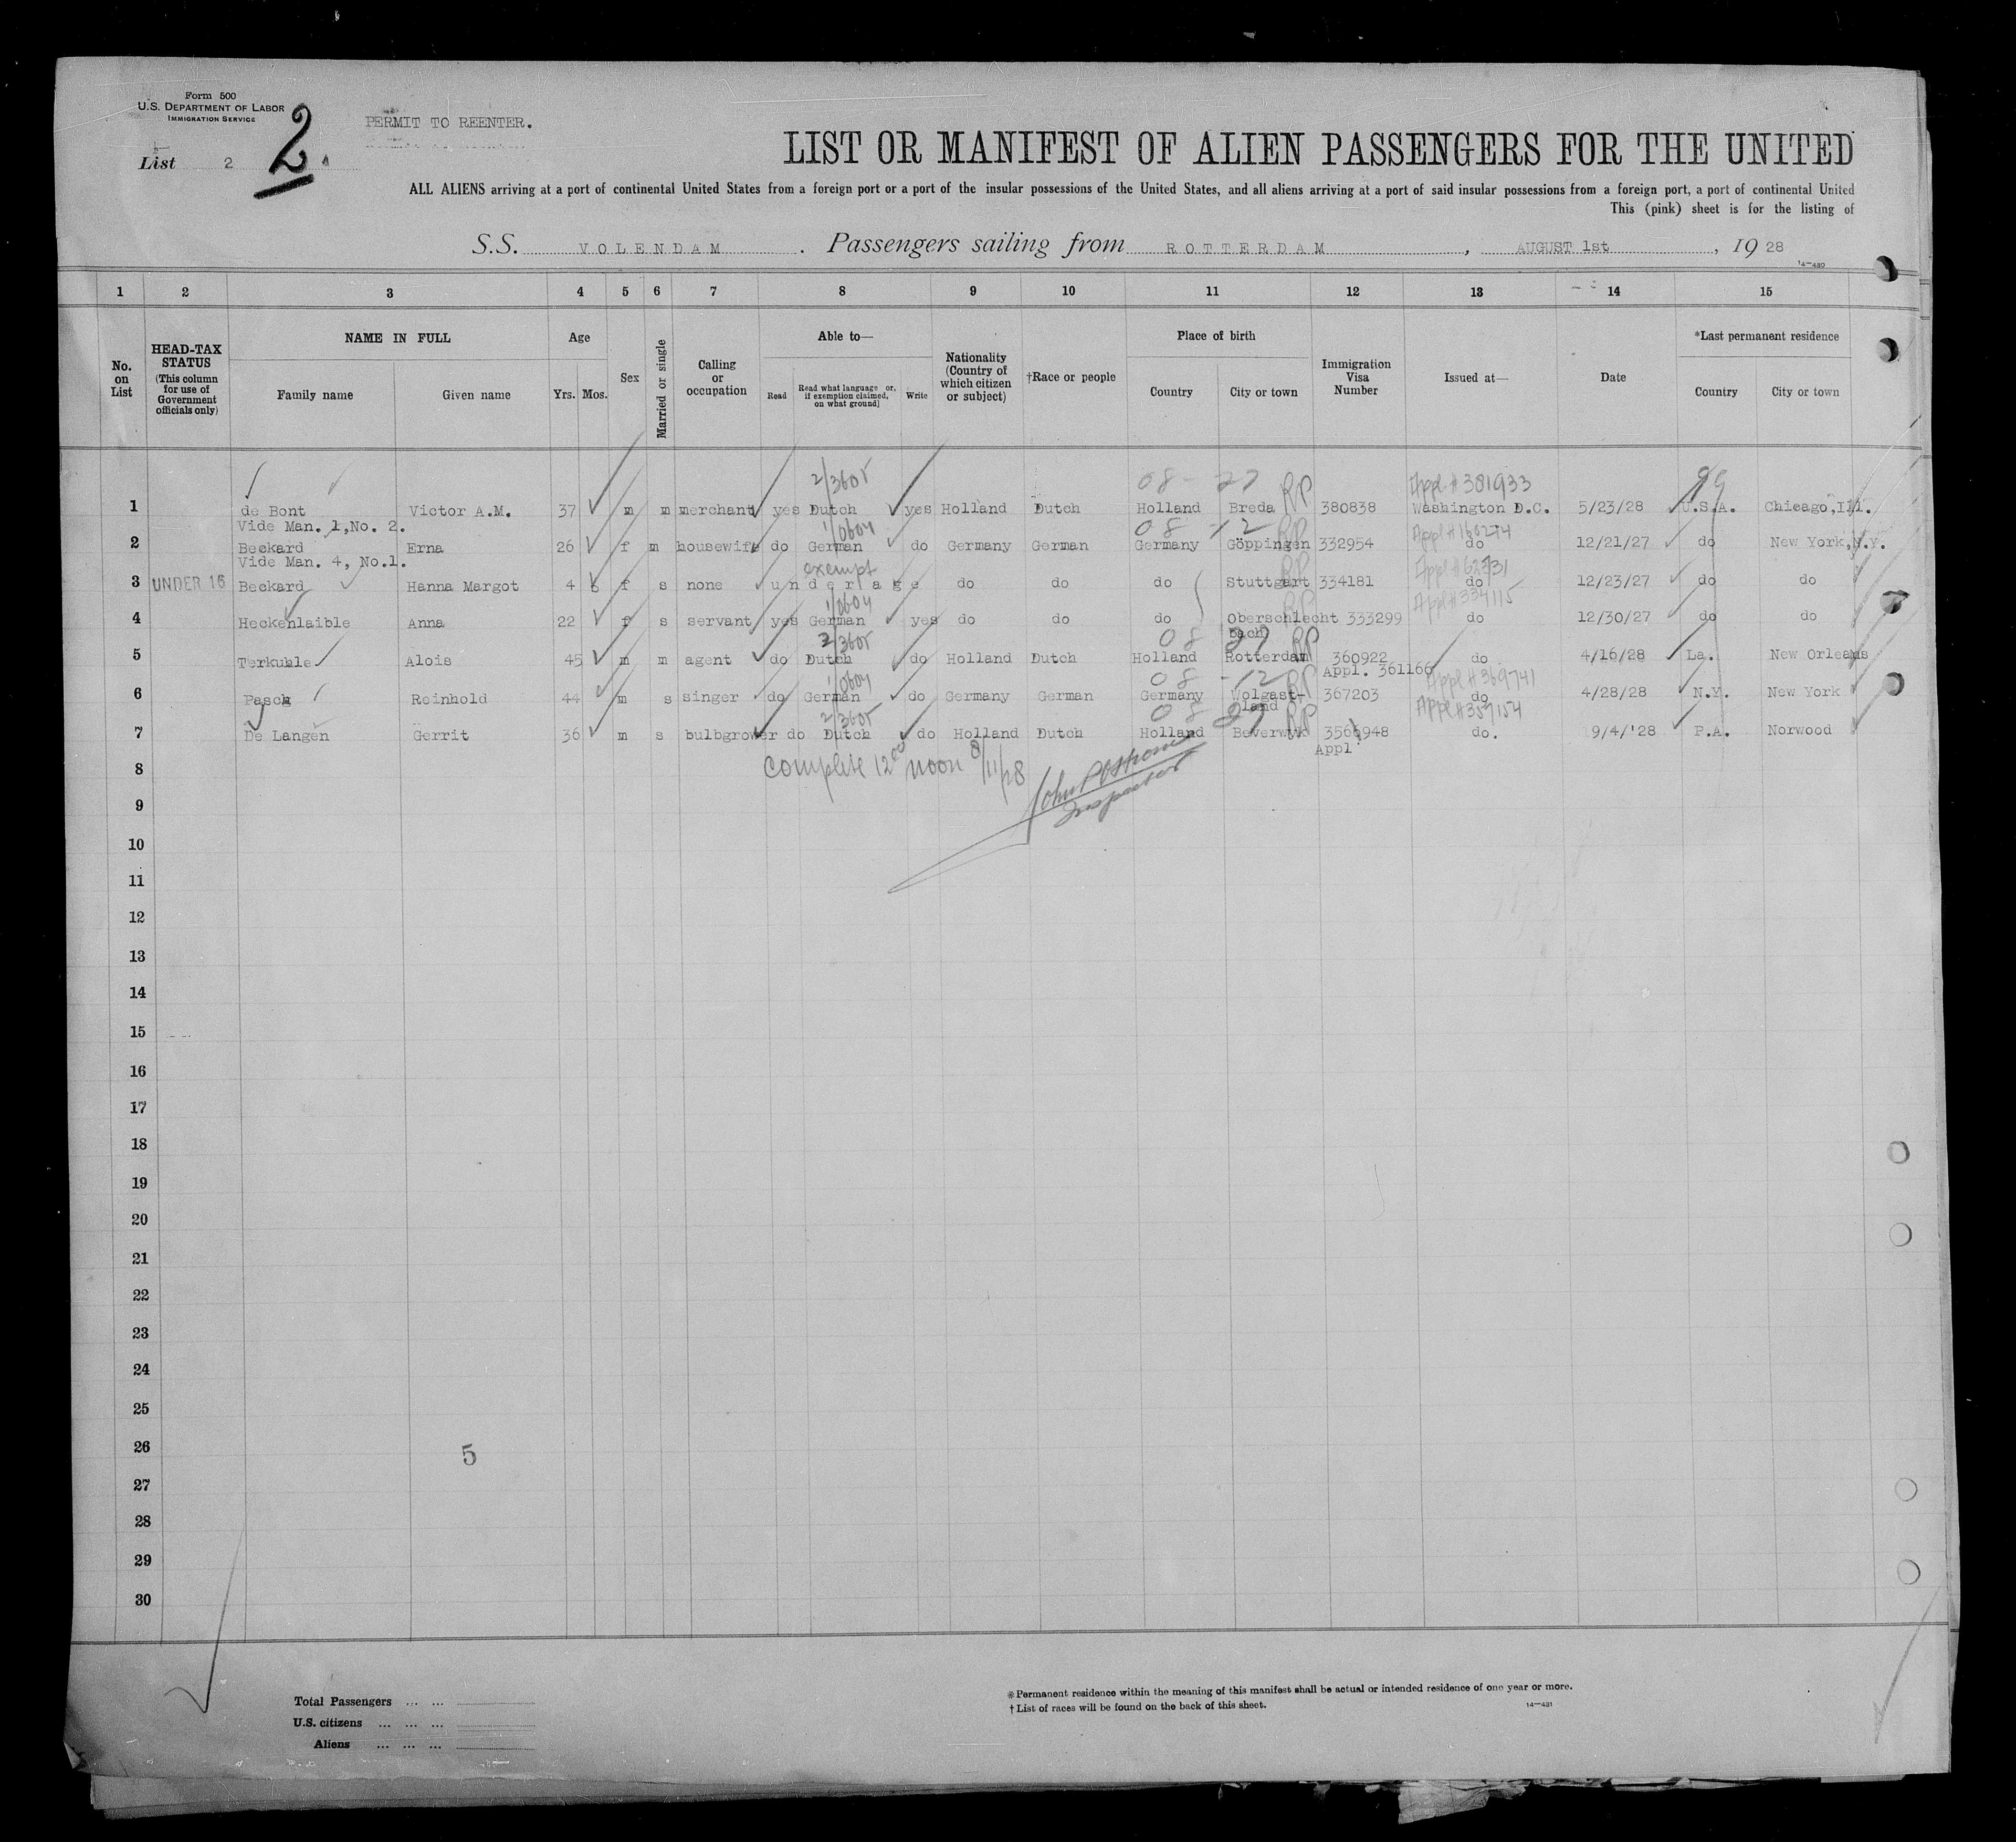 Form 500
U.S. DEPARTMENT OF LABOR
IMMIGRATION SERVICE
List 2
2.
PERMIT TO REENTER.
LIST OR MANIFEST OF ALIEN PASSENGERS FOR THE UNITED
ALL ALIENS arriving at a port of continental United States from a foreign port or a port of the insular possessions of the United States, and all aliens arriving at a port of said insular possessions from a foreign port, a port of continental United
This (pink) sheet is for the listing of
S.S. VOLENDAM. Passengers sailing from ROTTERDAM, AUGUST 1st, 19 28
14—430
1 2 3 4 5 6 7 8 9 10 11 12 13 14 15
No. on List
HEAD-TAX STATUS (This column for use of Government officials only)
NAME IN FULL
Family name Given name
Age
Yrs. Mos.
Sex
Married or single
Calling or occupation
Able to—
Read Read what language or, if exemption claimed, on what ground] Write
Nationality (Country of which citizen or subject)
†Race or people
Place of birth
Country City or town
Immigration Visa Number
Issued at—
Date
*Last permanent residence
Country City or town
2/3605 08 - 27 RP Appl # 381933 99
1 de Bont Victor A.M. 37 m m merchant yes Dutch yes Holland Dutch Holland Breda 380838 Washington D.C. 5/23/28 U.S.A. Chicago,Ill.
Vide Man. 1,No. 2. 1/0604 08 - 12 RP Appl # 160274
2 Beckard Erna 26 f m housewife do German do Germany German Germany Göppingen 332954 do 12/21/27 do New York,N.Y.
Vide Man. 4, No.1. exempt RP
3 UNDER 16 Beckard Hanna Margot 4 6 f s none under age do do do Stuttgart 334181 do 12/23/27 do do
1/0604 RP Appl # 334115
4 Heckenlaible Anna 22 f s servant yes German yes do do do Oberschlecht 333299 do 12/30/27 do do
bach
2/3605 08 27 RP
5 Terkuhle Alois 45 m m agent do Dutch do Holland Dutch Holland Rotterdam 360922 do 4/16/28 La. New Orleans
Appl. 361166
1/0604 08 - 12 RP Appl # 369741
6 Pasch Reinhold 44 m s singer do German do Germany German Germany Wolgast- 367203 do 4/28/28 N.Y. New York
land
2/3605 08 27 RP Appl # 357154
7 De Langen Gerrit 36 m s bulbgrower do Dutch do Holland Dutch Holland Beverwijk 356948 do. 9/4/'28 P.A. Norwood
Appl
complete 12 00 noon 8/11/28
Inspector
8
9
10
11
12
13
14
15
16
17
18
19
20
21
22
23
24
25
26
5
27
28
29
30
Total Passengers ... ...
U.S. citizens ... ... ...
Aliens ... ... ...
*Permanent residence within the meaning of this manifest shall be actual or intended residence of one year or more.
†List of races will be found on the back of this sheet.
14—431